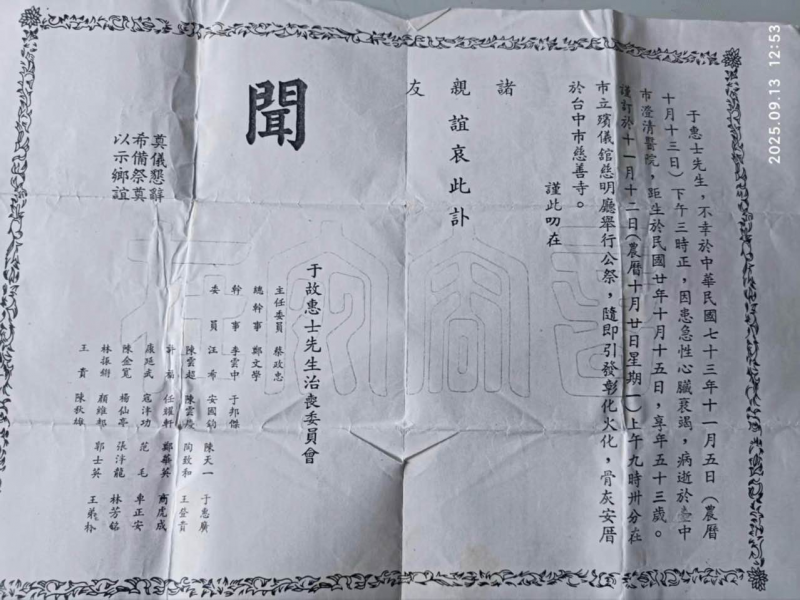 于惠士先生，不幸於中華民國七十三年十一月五日（農曆
十月十三日）下午三時正，因患急性心臟衰竭，病逝於台中
市澄清醫院，距生於民國廿年十月十五日，享年五十三歲。
謹訂於十一月十二日（農曆十月廿日星期一）上午九時卅分在
市立殯儀館慈明廳舉行公祭，隨即引發彰化火化，骨灰安厝
於台中市慈善寺。
謹此叨在
諸
親誼哀此訃
友
聞
于故惠士先生治喪委員會
主任委員 蔡政忠
總幹事 鄭文學
幹事 李雲中 于邦傑
委員 汪希 安國鈞 陳天一 于惠廣
陳雲超 陳雲 陶致和 王登貴
許福 任耀軒 鄭華英 商虎成
康延武 寇津功 范毛 車正安
陳金寬 楊仙亭 張津龍 林芳銘
林振樹 顏維邦 郭士英 王義
王貴 陳秋雄
奠儀懇辭
希備祭奠
以示鄉誼
2025.09.13 12:53